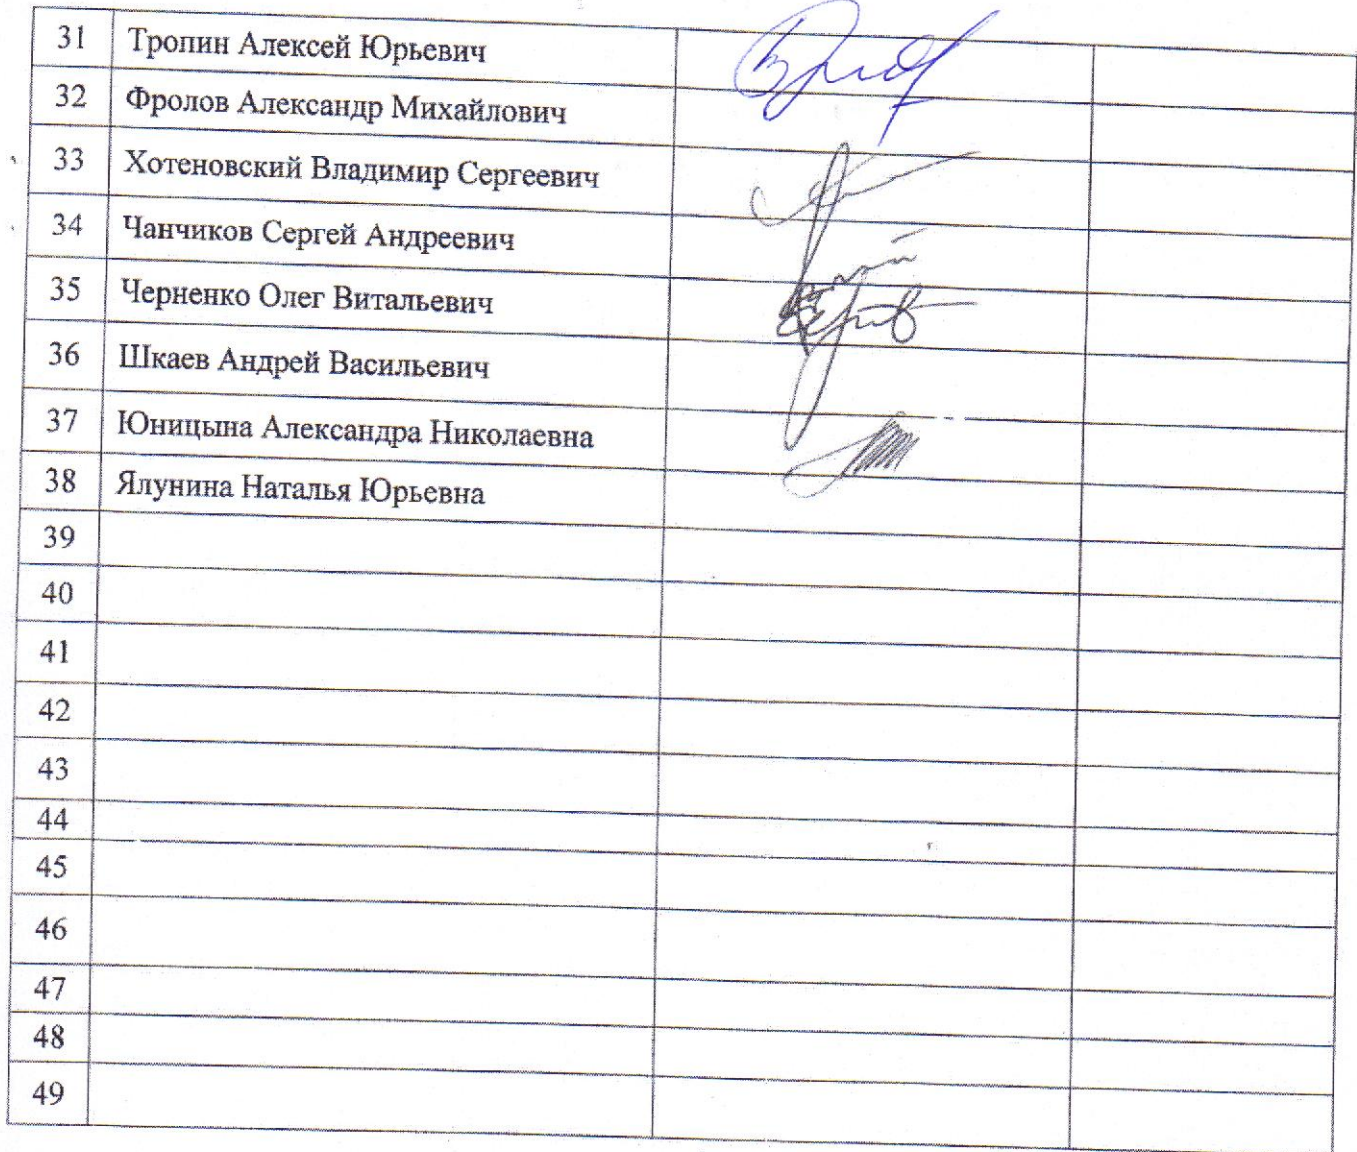 31 Тропин Алексей Юрьевич
32 Фролов Александр Михайлович
33 Хотеновский Владимир Сергеевич
34 Чанчиков Сергей Андреевич
35 Черненко Олег Витальевич
36 Шкаев Андрей Васильевич
37 Юницына Александра Николаевна
38 Ялунина Наталья Юрьевна
39
40
41
42
43
44
45
46
47
48
49